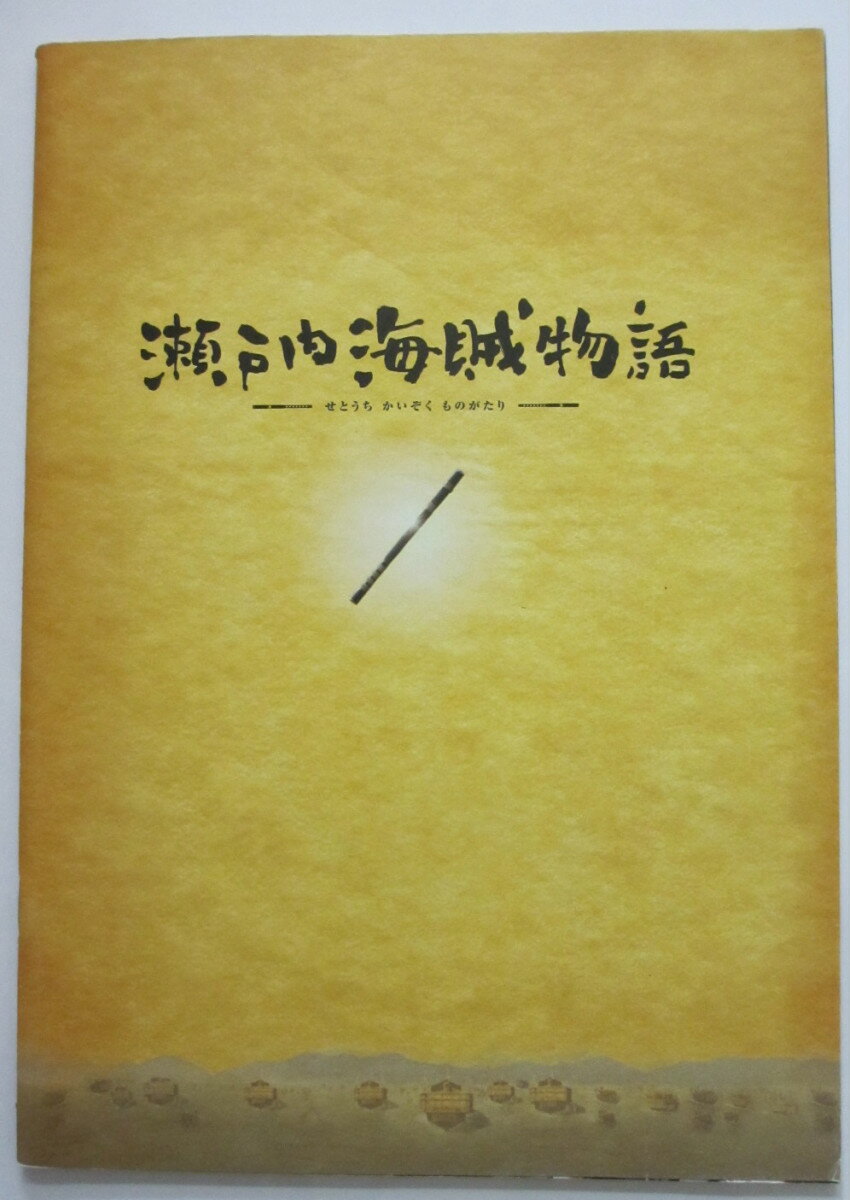 瀬戸内海賊物語
せとうち かいぞく ものがたり